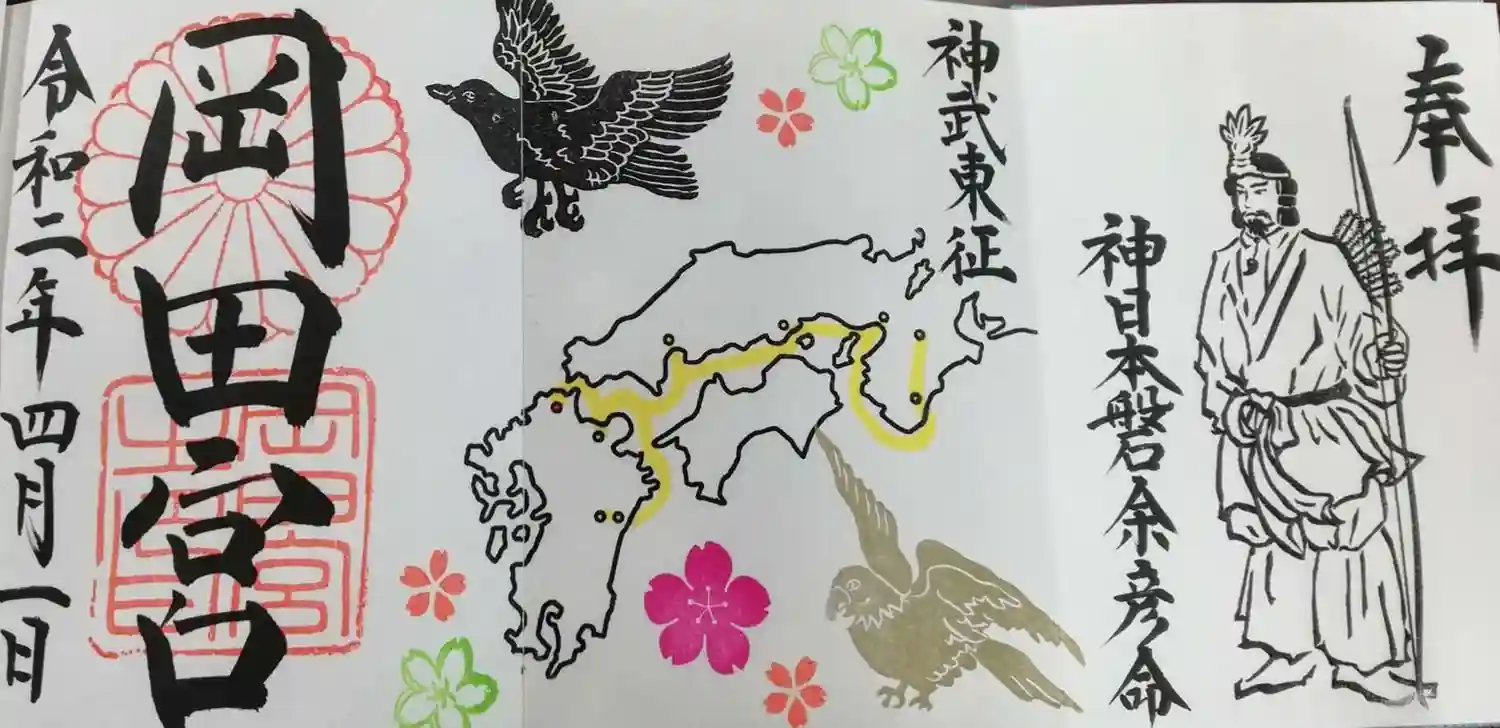 奉拝
神日本磐余彦命
神武東征
岡田宮
令和二年四月一日